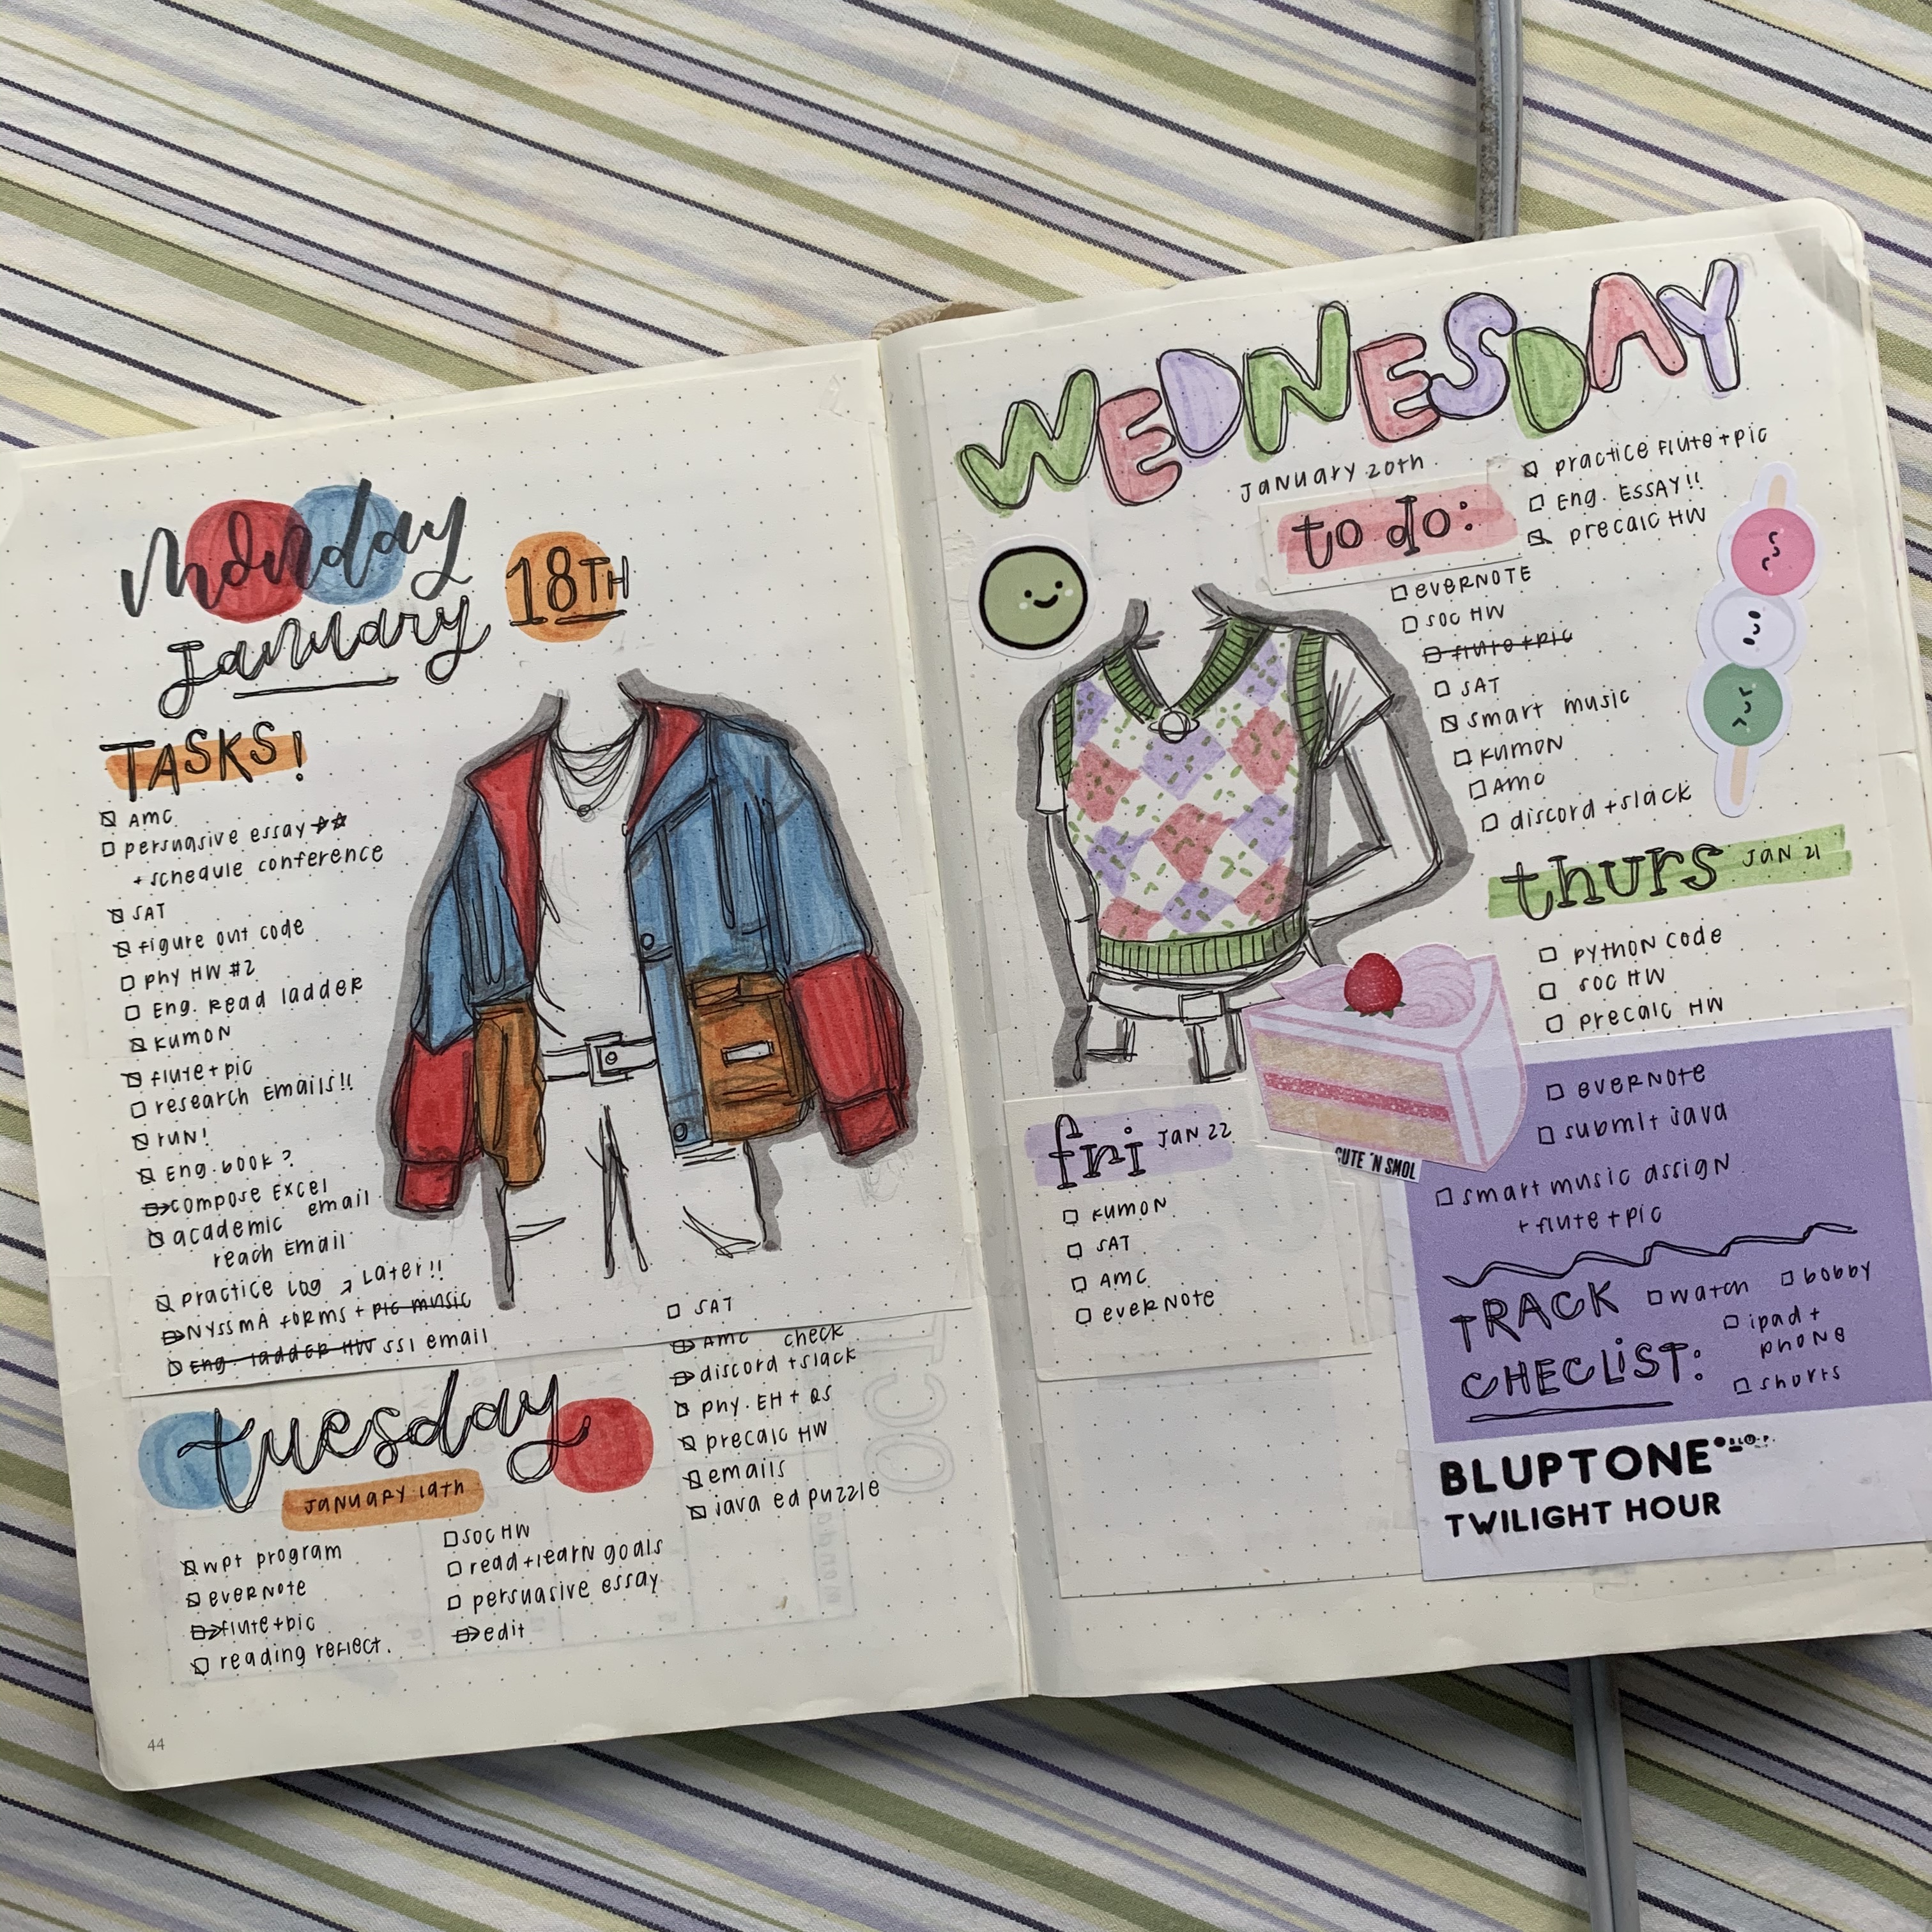 Monday
January 18TH
TASKS!
AMC
persuasive essay
+ schedule conference
SAT
figure out code
phy HW #2
Eng. Read ladder
KUMON
flute + pic
research Emails!!
run!
Eng. book?
compose Excel
academic email
reach Email
practice log → Later!!
NYSSMA forms + pic music
Eng. ladder HW SSI email
tuesday
January 19th
wpt program
everNote
flute + pic
reading reflect.
SOC HW
read + learn goals
persuasive essay
edit
SAT
AMC check
discord + slack
phy. EH + QS
precalc HW
emails
java ed puzzle
44
WEDNESDAY
January 20th
to do:
practice flute + pic
Eng. ESSAY!!
precalc HW
EVERNOTE
SOC HW
flute + pic
SAT
smart music
KUMON
AMC
discord + slack
thurs JAN 21
python code
SOC HW
precalc HW
everNote
submit java
smart music assign
+ flute + pic
TRACK
CHECLIST:
watch
bobby
ipad +
phone
shorts
BLUPTONE
TWILIGHT HOUR
CUTE 'N SMOL
fri JAN 22
KUMON
SAT
AMC
everNote
OCT